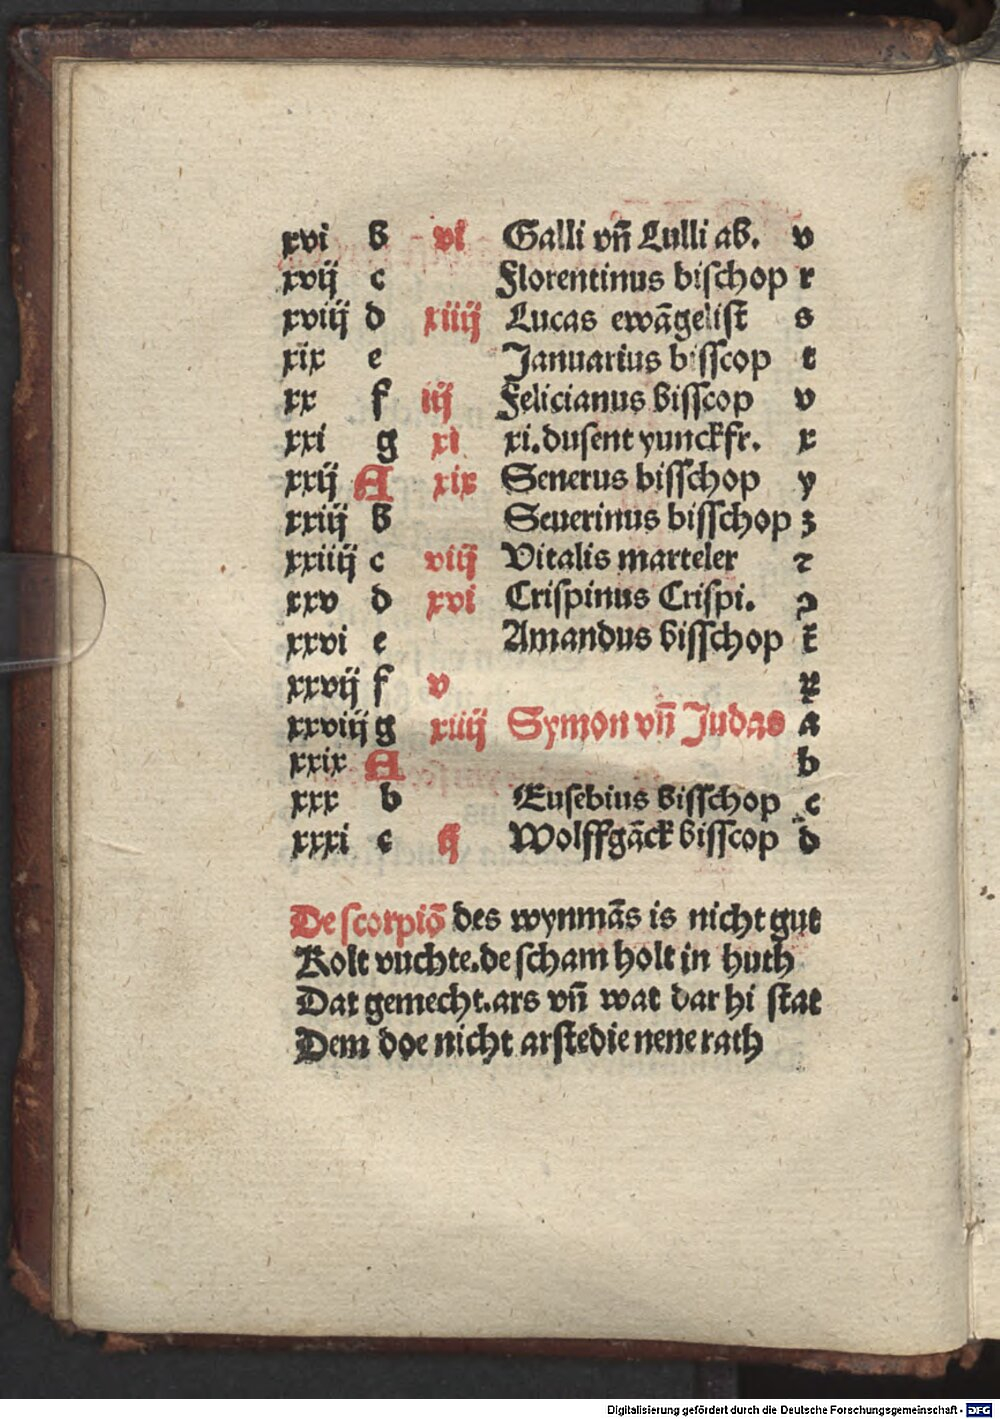 xvi b vi Galli vn̄ Lulli ab. v
xvij c Florentinus bischop r
xviij d xiiij Lucas ewāgelist̄ s
xix e Januarius bisscop t
xx f iij Felicianus bisscop v
xxi g xi xi. dusent yunckfr. x
xxij A xix Senerus bisschop y
xxiij b Seuerinus bisschop z
xxiiij c viij Vitalis marteler ꝛ
xxv d xvi Crispinus Crispi. ꝯ
xxvi e Amandus bisschop t̄
xxvij f v
xxviij g xiiij Symon vn̄ Judas a
xxix A b
xxx b Eusebius bisschop c
xxxi c ij Wolffgāck bisscop d
De scorpiō des wynmās is nicht gut
Kolt vuchte. de scham holt in huth
Dat gemecht. ars vn̄ wat dar hi stat
Dem doe nicht arstedie nene rath
Digitalisierung gefördert durch die Deutsche Forschungsgemeinschaft - DFG